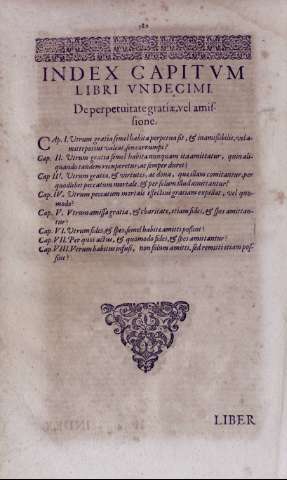 INDEX CAPITVM
LIBRI VNDECIMI.
De perpetuitate gratiæ, vel amis-
sione.
CAp. I. Vtrum gratia semel habita perpetua sit, & inamissibilis, vel a-
mitti potius valeat, seu corrumpi?
Cap. II. Vtrum gratia semel habita nunquam ita amittatur, quin ali-
quando tandem recuperetur, ac semper duret?
Cap III. Vtrum gratia, & virtutes, ac dona, quæ illam comitantur, per
quodlibet peccatum mortale, & per solum illud amittantur?
Cap. IV. Vtrum peccatum mortale effectiuè gratiam expellat, vel quo-
modo?
Cap. V. Vtrum amissa gratia, & charitate, etiam fides, & spes amittan-
tur?
Cap. VI. Vtrum fides, & spes, semel habitæ amitti possint?
Cap. VII. Per quos actus, & quomodo fides, & spes amittantur?
Cap. VIII. Vtrum habitus infusi, non solum amitti, sed remitti etiam pos-
sint?
LIBER